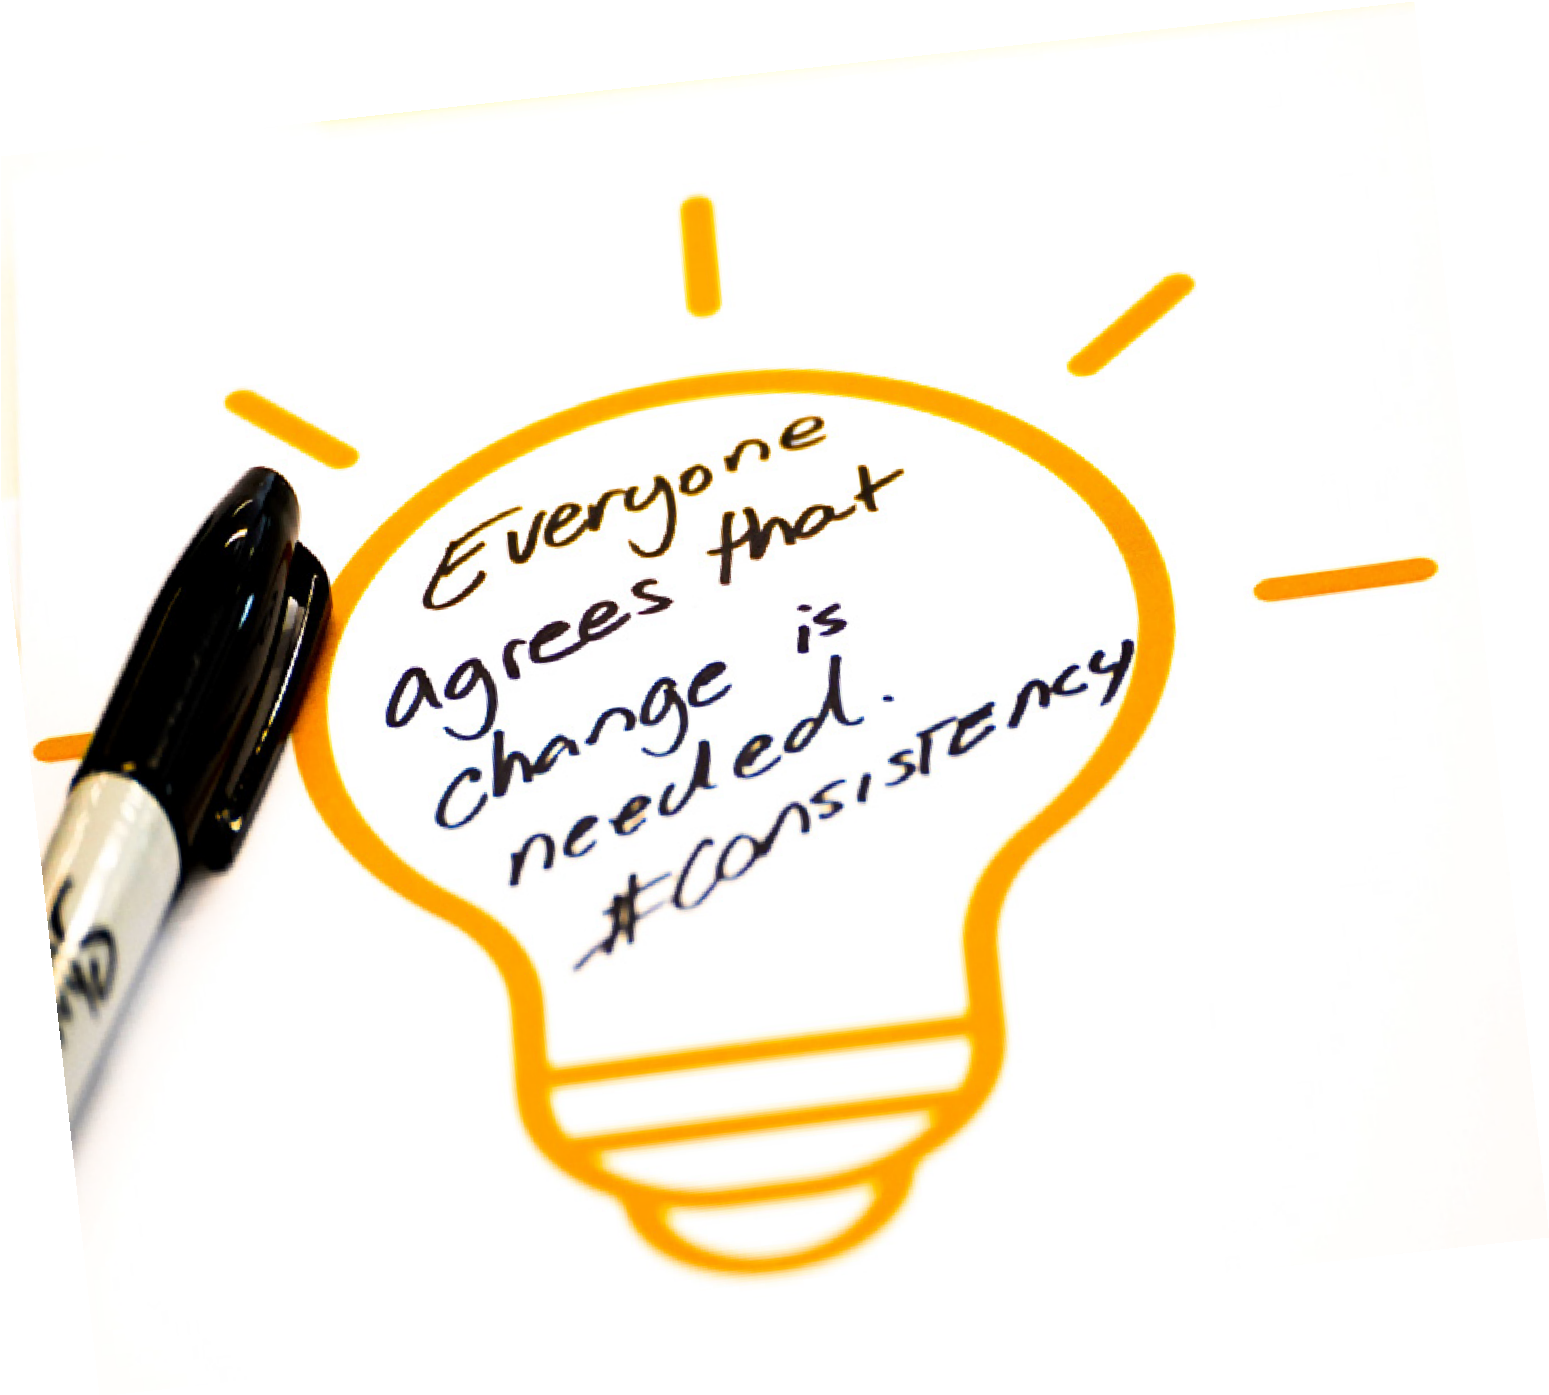 Everyone
agrees that
change is
needed.
#ConsisTEncy